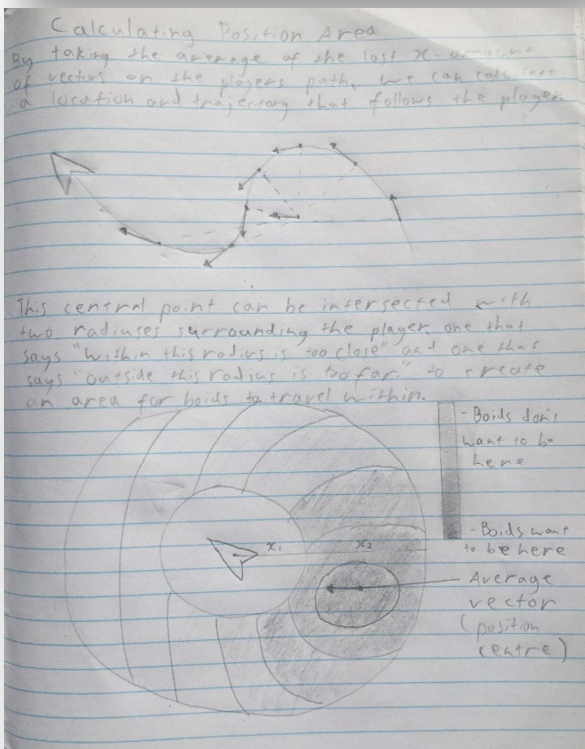 Calculating Position Area
By taking the average of the last x-amount
of vectors on the players path, we can calculate
a location and trajectory that follows the player
This central point can be intersected with
two radiuses surrounding the player, one that
says "within this radius is too close" and one that
says "outside this radius is too far" to create
an area for boids to travel within.
- Boids don't
want to be
here
- Boids want
to be here
x1
x2
Average
vector
(position
centre)